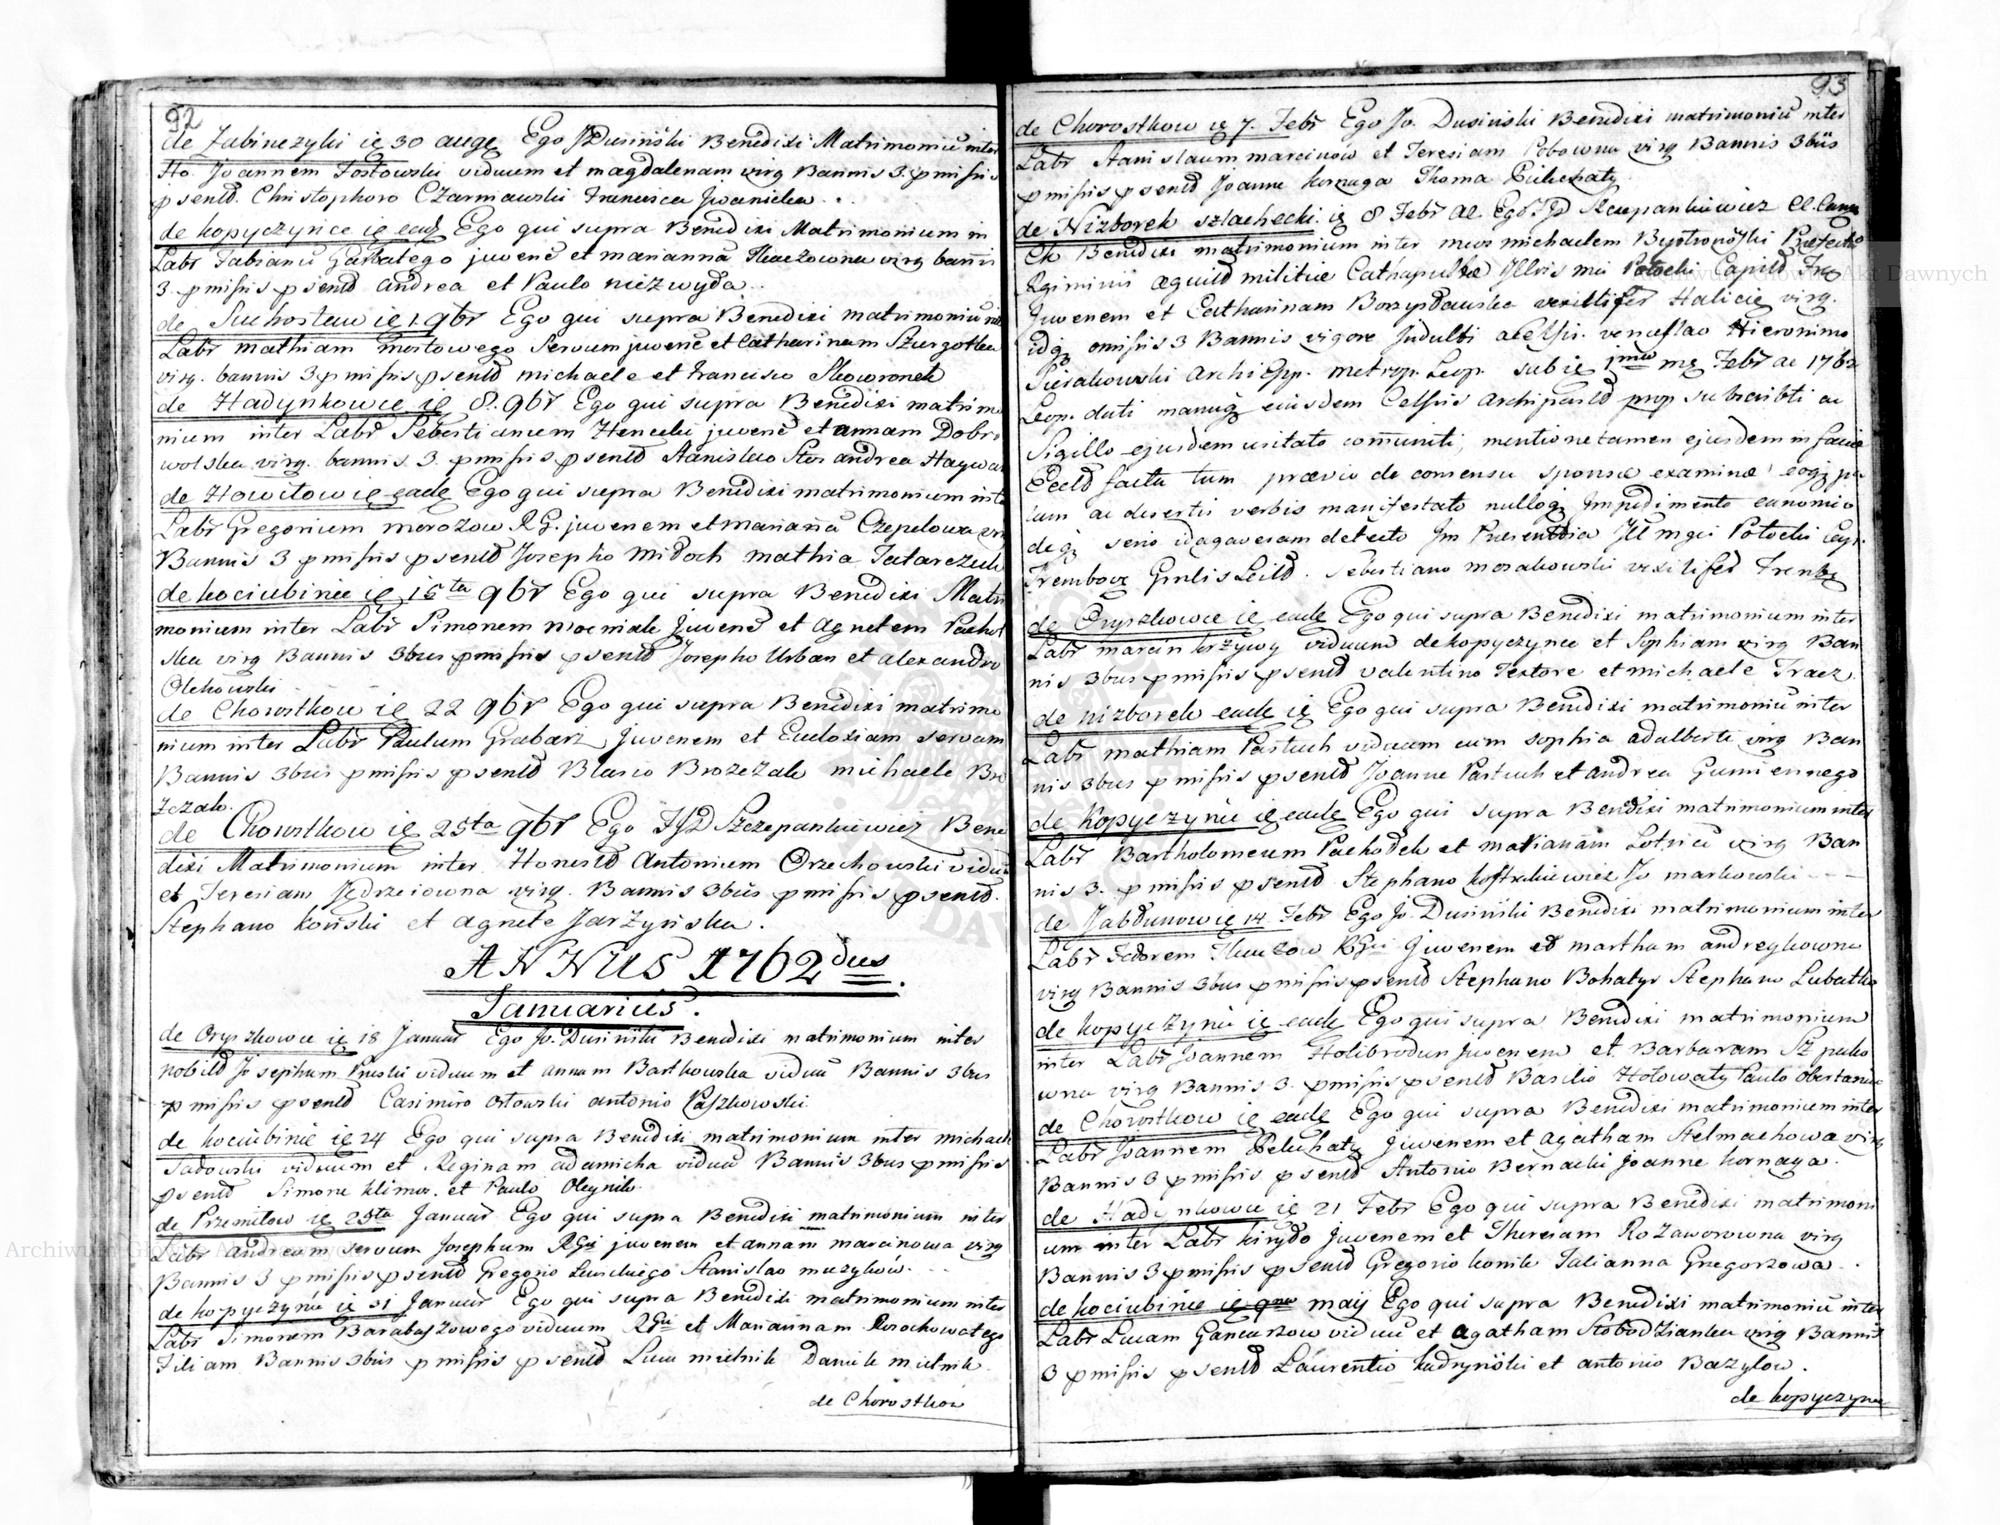 92
de Zabinczyki ię 30 augę Ego J Dusiński Benedixi Matrimoniū inter
Ho. Joannem Fostowski viduum et magdalenam virg Bannis 3. pmissis
psentd. Christophoro Czarniawski Francisca Jwanicka . .
de kopyczynce ię eadę Ego qui supra Benedixi Matrimonium in
Labr Fabianū Garbatego juvenē et mariannā Tkaczowna virg bannis
3 pmissis psentd andrea et Paulo niezwyda.
de Suchostaw ię 1 9br Ego qui supra Benedixi matrimoniū
Labr mathiam mostowego Servum juvenē et Catharinam Szurgotka
virg. bannis 3 pmissis psentd michaele et francisco Skowronek
de Hadynkowce ię 8. 9br Ego qui supra Benedixi matrimo
nium inter Labr Sebestianum Hencek juvenē et annam Dobro
wolska virg. bannis 3. pmissis psentd Stanislao Stos andrea
de Howitow ię eadę Ego qui supra Benedixi matrimonium inte
Labr Gregorium morozow RG. juvenem et mariañā Czepelowa
Bannis 3 pmissis psentd Josepho Midoch mathia Tatarczuk
de kociubince ię 15ta 9br Ego qui supra Benedixi Matri
monium inter Labr Simonem mocniak Juvenē et agnetem
ska virg Bannis 3bus pmissis psentd Josepho Urban et alexandro
Olchowski
de Chorostkow ię 22 9br Ego qui supra Benedixi matrimo
nium inter Labr Paulum Grabarz Juvenem et Eudoxiam servam
Bannis 3bus pmissis psentd Blasio Brzezak michaele Br
zezak.
de Chorostkow ię 25ta 9br Ego JSD Szczepankiewicz Bene
dixi Matrimonium inter Honestd Antonium Orzechowski viduū
et Teresiam Jędrzeiowna virg. Bannis 3bus pmissis psentd.
Stephano koński et agnete Jarzyńska.
ANNUS 1762dus.
Januarius.
de Oryszkowce ię 18 Januar Ego Jo. Dusiński Benedixi matrimonium inter
nobild Josephum Pruski viduum et annam Bartkowska viduā Bannis 3bus
pmissis psentd Casimiro Ostowski antonio Paszkowski
de kociubince ię 24 Ego qui supra Benedixi matrimonium inter michaele
Sadowski viduum et Reginam adamicha viduā Bannis 3bus pmissis
psentd Simone klimas. et Paulo Oleynik.
de Przemitow ię 25ta Januar Ego qui supra Benedixi matrimonium inter
Labr andream servum Josephum RGu juvenem et annam marcinowa virg
Bannis 3 pmissis psentd Gregorio Stanislao muzykow.
de kopyczyńce ię 31 Januar Ego qui supra Benedixi matrimonium inter
Labr Simonem Barabaszowego viduum RGu et Mariannam Prochowatego
Filiam Bannis 3bus pmissis psentd Luca mielnik Daniele mielnik.
de Chorostkow
93
de Chorostkow ię 7. Febr Ego Jo. Dusiński Benedixi matrimoniū inter
Labr Stanislaum marcinow et Teresiam virg Bannis 3bus
pmissis psentd Joanne kornaga Thoma Pelechaty
de Nizborek szlachecki ię 8 Febr al. Ego JSD Szczepankiewicz
Ch Benedixi matrimonium inter michaelem Bystronoski Præfecto
Regiminis militiæ Cathapultæ Potocki
Juvenem et Catharinam Borzysławska vexillifer Haliciæ virg.
idq omissis 3 Bannis vigore Indulti a Venceslao Hieronimo
Sierakowski ArchiEpp. metrop. Leop. sub ię 1ma mę Febr ac 1762
Leop. dati manuq eiusdem Celsis Archipresld prop subscribti ac
Sigillo ejusdem usitato com̄uniti, mentione tamen ejusdem in facie
Eccld facta tum prævio de consensu sponsæ examine eoq
tum ac desertis verbis manifestato nulloq Impedimēto canonico
deq serio idagaveram detecto In Præsentia Potocki
Trembow Sebestiano morakowski vexilifer Tremb
de Oryszkowce ię eadę Ego qui supra Benedixi matrimonium inter
Labr marcin krzywy viduum de kopyczynce et Sophiam virg Ban
nis 3bus pmissis psentd valentino Textore et michaele Tracz.
de nizborek eadę ię Ego qui supra Benedixi matrimoniū inter
Labr mathiam Pastuch viduum cum sophia adalberti virg Ban
nis 3bus pmissis psentd Joanne Pastuch et andrea Gumiennego
de kopyczyńce ię eadę Ego qui supra Benedixi matrimonium inter
Labr Bartholomeum Pachodek et mariañam virg Ban
nis 3. pmissis psentd Stephano kostrakiewicz Jo markowski - - -
de Jabdunow ię 14 Febr Ego Jo. Dusiński Benedixi matrimonium inter
Labr Fedorem Tkaczow RGu Juvenem et martham andreykowna
virg Bannis 3bus pmissis psentd Stephano Bohatyr Stephano Lubatka
de kopyczyńce ię eadę Ego qui supra Benedixi matrimonium
inter Labr Joannem Holibrodun Juvenem et Barbaram Szpako
wna virg Bannis 3. pmissis psentd Basilio Hołowaty Paulo
de Chorostkow ię eadę Ego qui supra Benedixi matrimonium inter
Labr Joannem Pelechaty Juvenem et agatham Stelmachowa virg
Bannis 3 pmissis psentd Antonio Bernacki Joanne kornaga.
de Hadynkowce ię 21 Febr Ego qui supra Benedixi matrimoni
um inter Labr kirydo Juvenem et Theresiam Rozaworowna virg
Bannis 3 pmissis psentd Gregorio konik Talianna Gregorzowa.
de kociubince ię 9na maij Ego qui supra Benedixi matrimoniū inter
Labr Lucam Gancarzow viduū et agatham Słobodzianka virg Bannis
3 pmissis psentd Laurentio kudryński et antonio Bazylow.
de kopyczynce